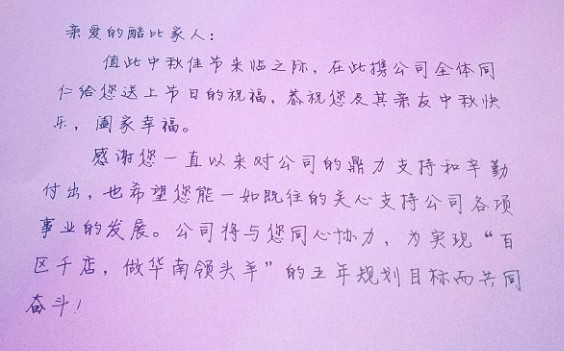 亲爱的酷比家人：
值此中秋佳节来临之际，在此携公司全体同
仁给您送上节日的祝福，恭祝您及其亲友中秋快
乐，阖家幸福。
感谢您一直以来对公司的鼎力支持和辛勤
付出，也希望您能一如既往的关心支持公司各项
事业的发展。公司将与您同心协力，为实现“百
区千店，做华南领头羊”的五年规划目标而共同
奋斗！